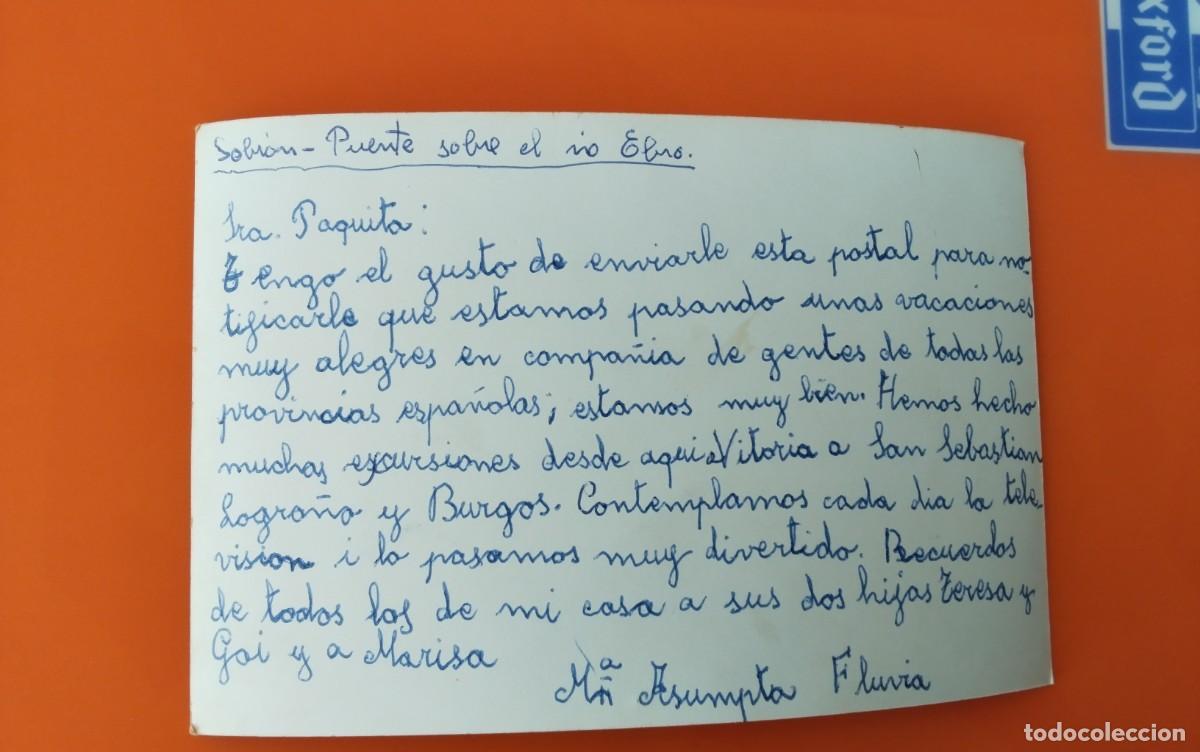 xford
Sobrón - Puente sobre el rio Ebro.
Sra. Paquita:
Tengo el gusto de enviarle esta postal para no-
tificarle que estamos pasando unas vacaciones
muy alegres en compañia de gentes de todas las
provincias españolas; estamos muy bien. Hemos hecho
muchas excursiones desde aqui Vitoria a San Sebastian
Logroño y Burgos. Contemplamos cada dia la tele-
vision i lo pasamos muy divertido. Recuerdos
de todos los de mi casa a sus dos hijas Teresa y
Goi y a Marisa
Mª Asumpta Fluvia
todocoleccion